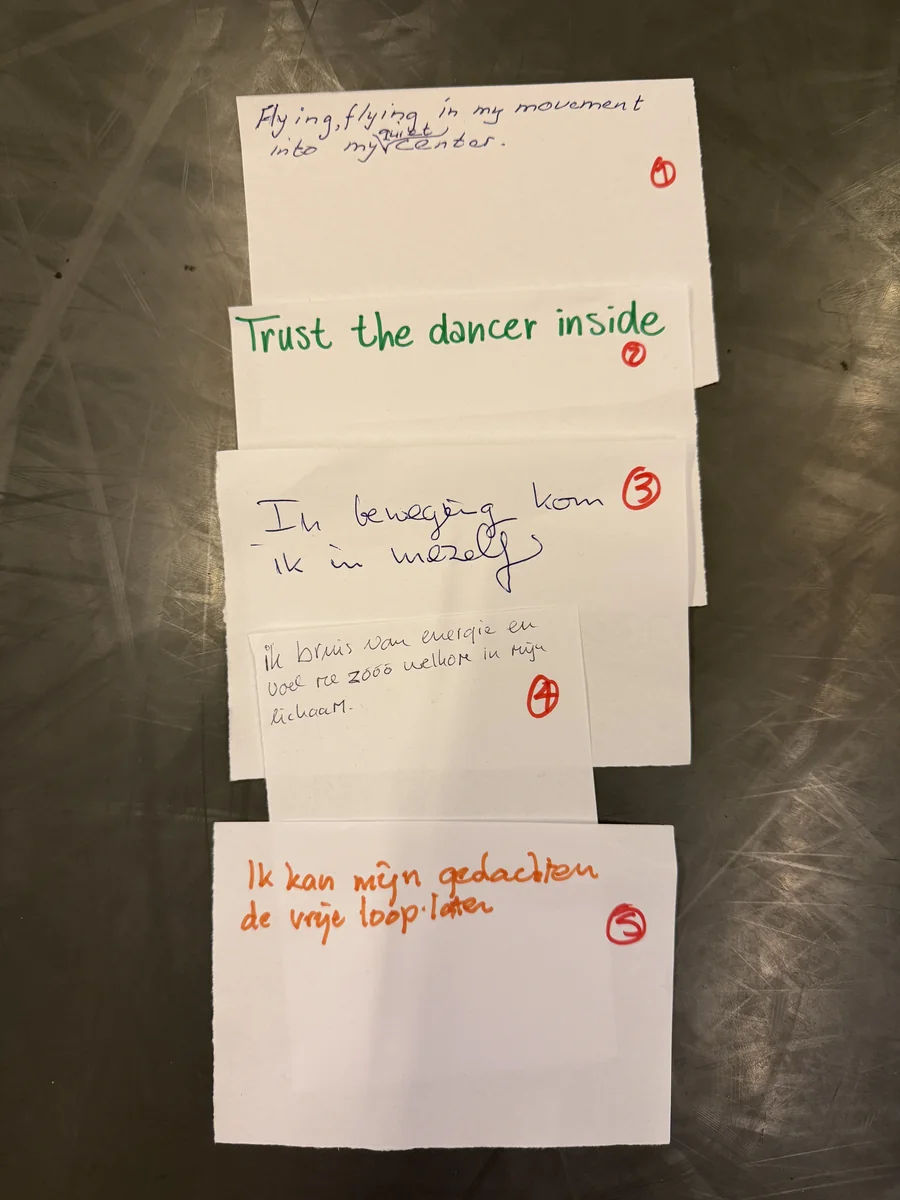 Flying, flying in my movement
into my quiet center.
1
Trust the dancer inside
2
In beweging kom
ik in mezelf
3
ik bruis van energie en
voel me zóóó welkom in mijn
lichaam.
4
Ik kan mijn gedachten
de vrije loop laten
5